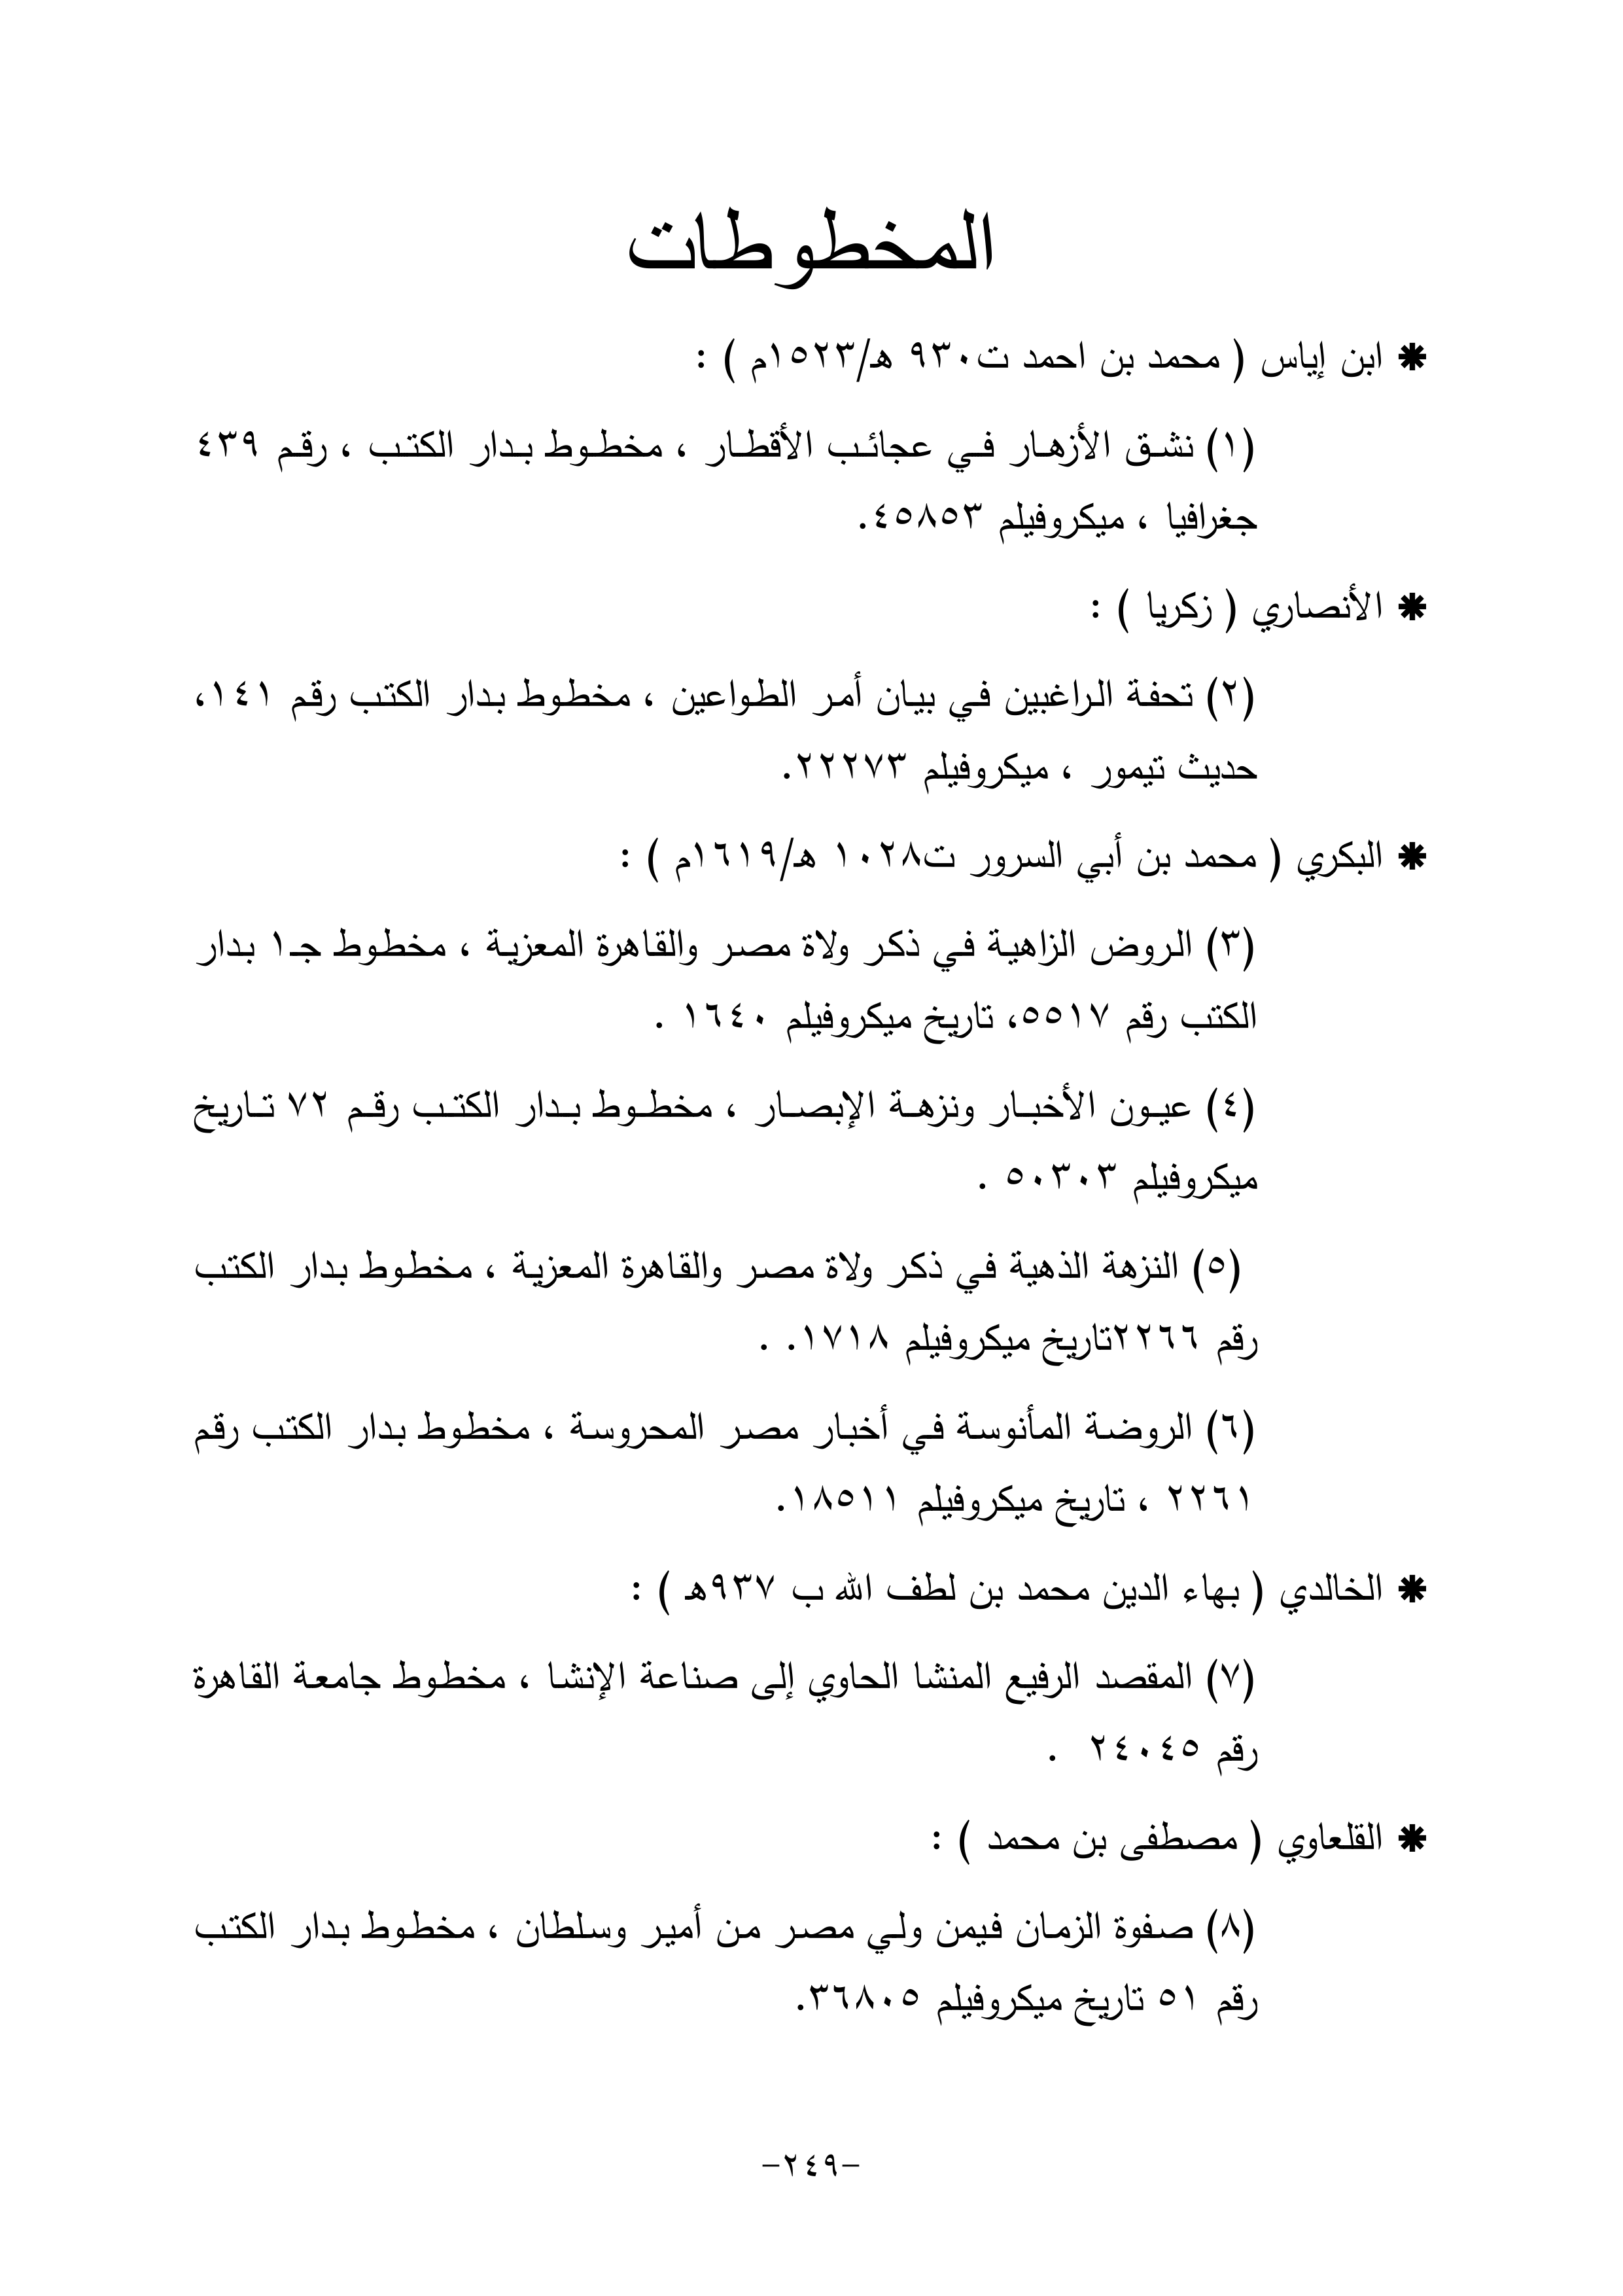 المخطوطات
✱ ابن إياس ( محمد بن احمد ت٩٣٠ هـ/١٥٢٣م ) :
(١) نشق الأزهار في عجائب الأقطار ، مخطوط بدار الكتب ، رقم ٤٣٩
جغرافيا ، ميكروفيلم ٤٥٨٥٣.
✱ الأنصاري ( زكريا ) :
(٢) تحفة الراغبين في بيان أمر الطواعين ، مخطوط بدار الكتب رقم ١٤١،
حديث تيمور ، ميكروفيلم ٢٢٢٧٣.
✱ البكري ( محمد بن أبي السرور ت١٠٢٨ هـ/١٦١٩م ) :
(٣) الروض الزاهية في ذكر ولاة مصر والقاهرة المعزية ، مخطوط جـ١ بدار
الكتب رقم ٥٥١٧، تاريخ ميكروفيلم ١٦٤٠ .
(٤) عيون الأخبار ونزهة الإبصار ، مخطوط بدار الكتب رقم ٧٢ تاريخ
ميكروفيلم ٥٠٣٠٣ .
(٥) النزهة الذهية في ذكر ولاة مصر والقاهرة المعزية ، مخطوط بدار الكتب
رقم ٢٢٦٦تاريخ ميكروفيلم ١٧١٨. .
(٦) الروضة المأنوسة في أخبار مصر المحروسة ، مخطوط بدار الكتب رقم
٢٢٦١ ، تاريخ ميكروفيلم ١٨٥١١.
✱ الخالدي ( بهاء الدين محمد بن لطف الله ب ٩٣٧هـ ) :
(٧) المقصد الرفيع المنشا الحاوي إلى صناعة الإنشا ، مخطوط جامعة القاهرة
رقم ٢٤٠٤٥ .
✱ القلعاوي ( مصطفى بن محمد ) :
(٨) صفوة الزمان فيمن ولي مصر من أمير وسلطان ، مخطوط بدار الكتب
رقم ٥١ تاريخ ميكروفيلم ٣٦٨٠٥.
-٢٤٩-